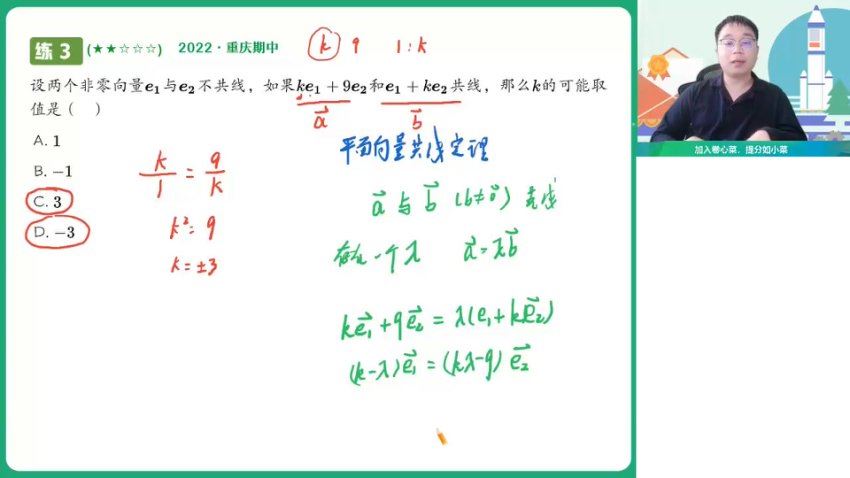 练 3 (★★☆☆☆) 2022·重庆期中
k 9 1:k
设两个非零向量e₁与e₂不共线，如果ke₁+9e₂和e₁+ke₂共线，那么k的可能取
值是（ ）
a⃗ b⃗
A. 1
B. −1
C. 3
D. −3
k/1 = 9/k
k²=9
k=±3
平面向量共线定理
a⃗与b⃗ (b≠0⃗) 共线
存在一个λ a⃗=λb⃗
ke₁⃗+9e₂⃗=λ(e₁+ke₂⃗)
(k−λ)e₁⃗=(kλ−9)e₂⃗
加入卷心菜，提分如小菜